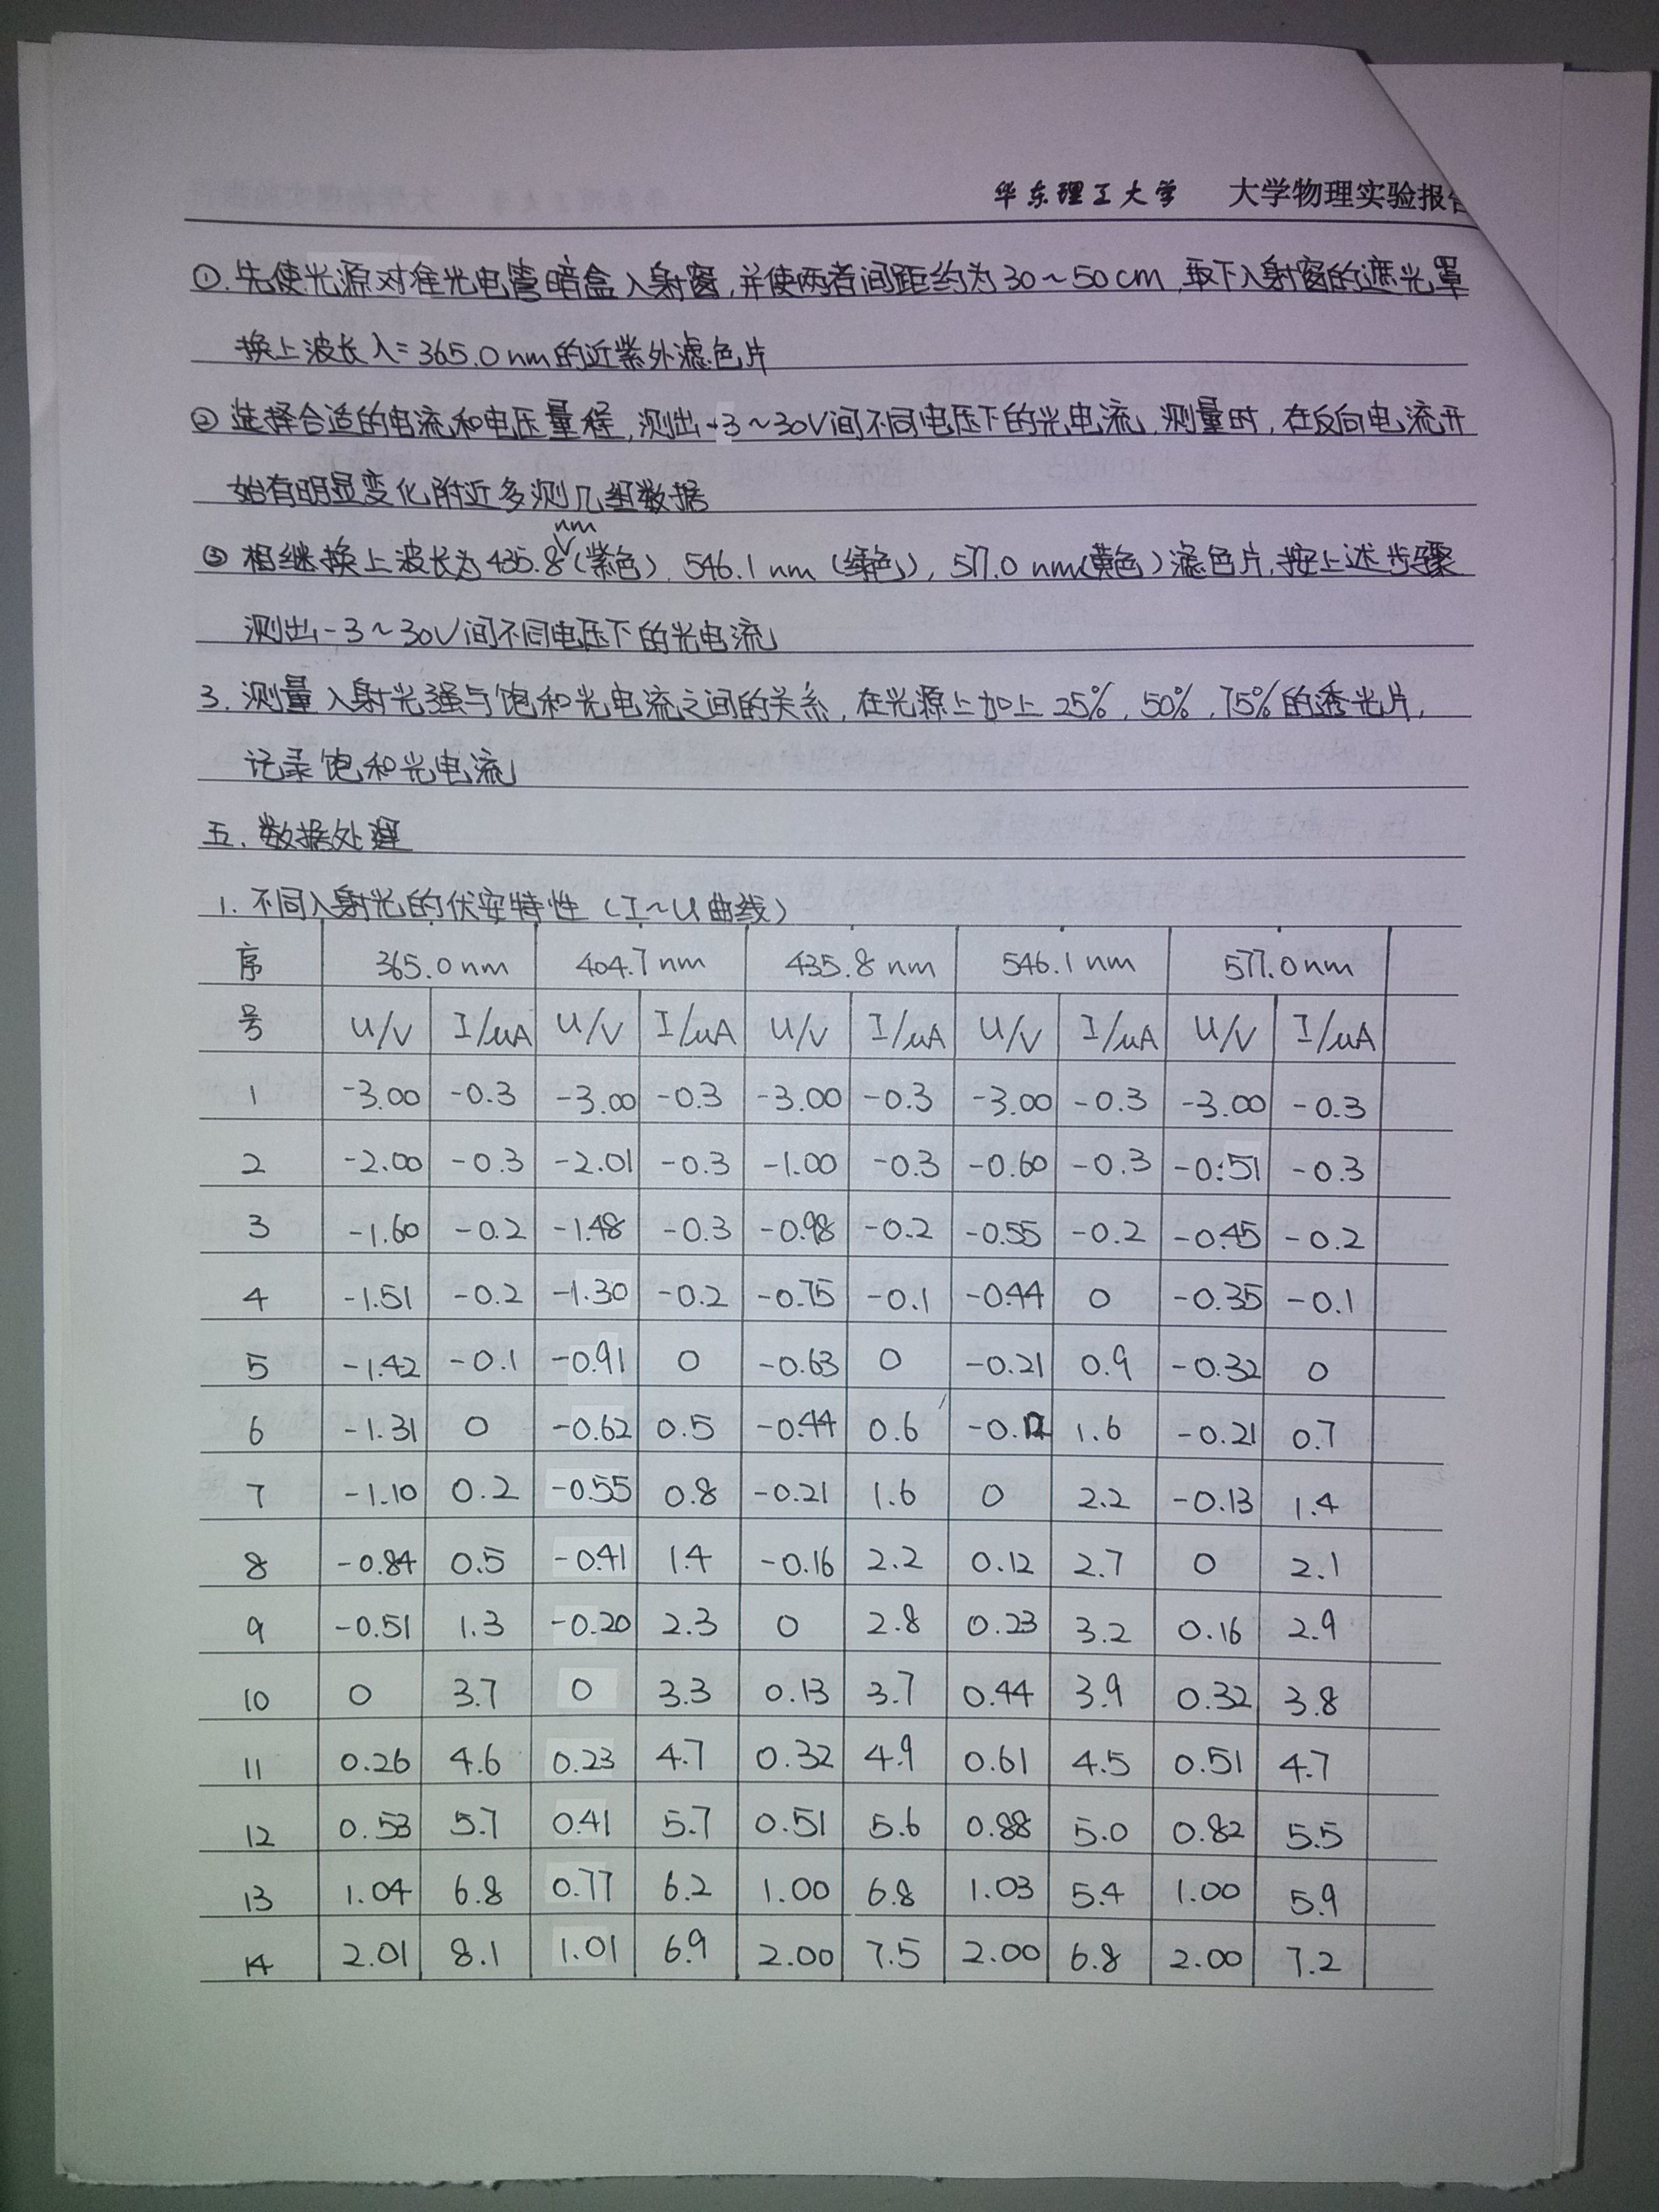 华东理工大学 大学物理实验报告
①. 先使光源对准光电管暗盒入射窗,并使两者间距约为30~50cm,取下入射窗的遮光罩
换上波长λ=365.0nm的近紫外滤色片
② 选择合适的电流和电压量程,测出-3~30V间不同电压下的光电流,测量时,在反向电流开
始有明显变化附近多测几组数据
③ 相继换上波长为435.8nm(紫色), 546.1nm(绿色), 577.0nm(黄色)滤色片,按上述步骤
测出-3~30V间不同电压下的光电流
3. 测量入射光强与饱和光电流之间的关系,在光源上加上25%,50%,75%的透光片,
记录饱和光电流
五. 数据处理
1. 不同入射光的伏安特性(I~U曲线)
序 365.0nm 404.7nm 435.8nm 546.1nm 577.0nm
号 U/V I/μA U/V I/μA U/V I/μA U/V I/μA U/V I/μA
1 -3.00 -0.3 -3.00 -0.3 -3.00 -0.3 -3.00 -0.3 -3.00 -0.3
2 -2.00 -0.3 -2.01 -0.3 -1.00 -0.3 -0.60 -0.3 -0.51 -0.3
3 -1.60 -0.2 -1.48 -0.3 -0.98 -0.2 -0.55 -0.2 -0.45 -0.2
4 -1.51 -0.2 -1.30 -0.2 -0.75 -0.1 -0.44 0 -0.35 -0.1
5 -1.42 -0.1 -0.91 0 -0.63 0 -0.21 0.9 -0.32 0
6 -1.31 0 -0.62 0.5 -0.44 0.6 -0.12 1.6 -0.21 0.7
7 -1.10 0.2 -0.55 0.8 -0.21 1.6 0 2.2 -0.13 1.4
8 -0.84 0.5 -0.41 1.4 -0.16 2.2 0.12 2.7 0 2.1
9 -0.51 1.3 -0.20 2.3 0 2.8 0.23 3.2 0.16 2.9
10 0 3.7 0 3.3 0.13 3.7 0.44 3.9 0.32 3.8
11 0.26 4.6 0.23 4.7 0.32 4.9 0.61 4.5 0.51 4.7
12 0.53 5.7 0.41 5.7 0.51 5.6 0.88 5.0 0.82 5.5
13 1.04 6.8 0.77 6.2 1.00 6.8 1.03 5.4 1.00 5.9
14 2.01 8.1 1.01 6.9 2.00 7.5 2.00 6.8 2.00 7.2